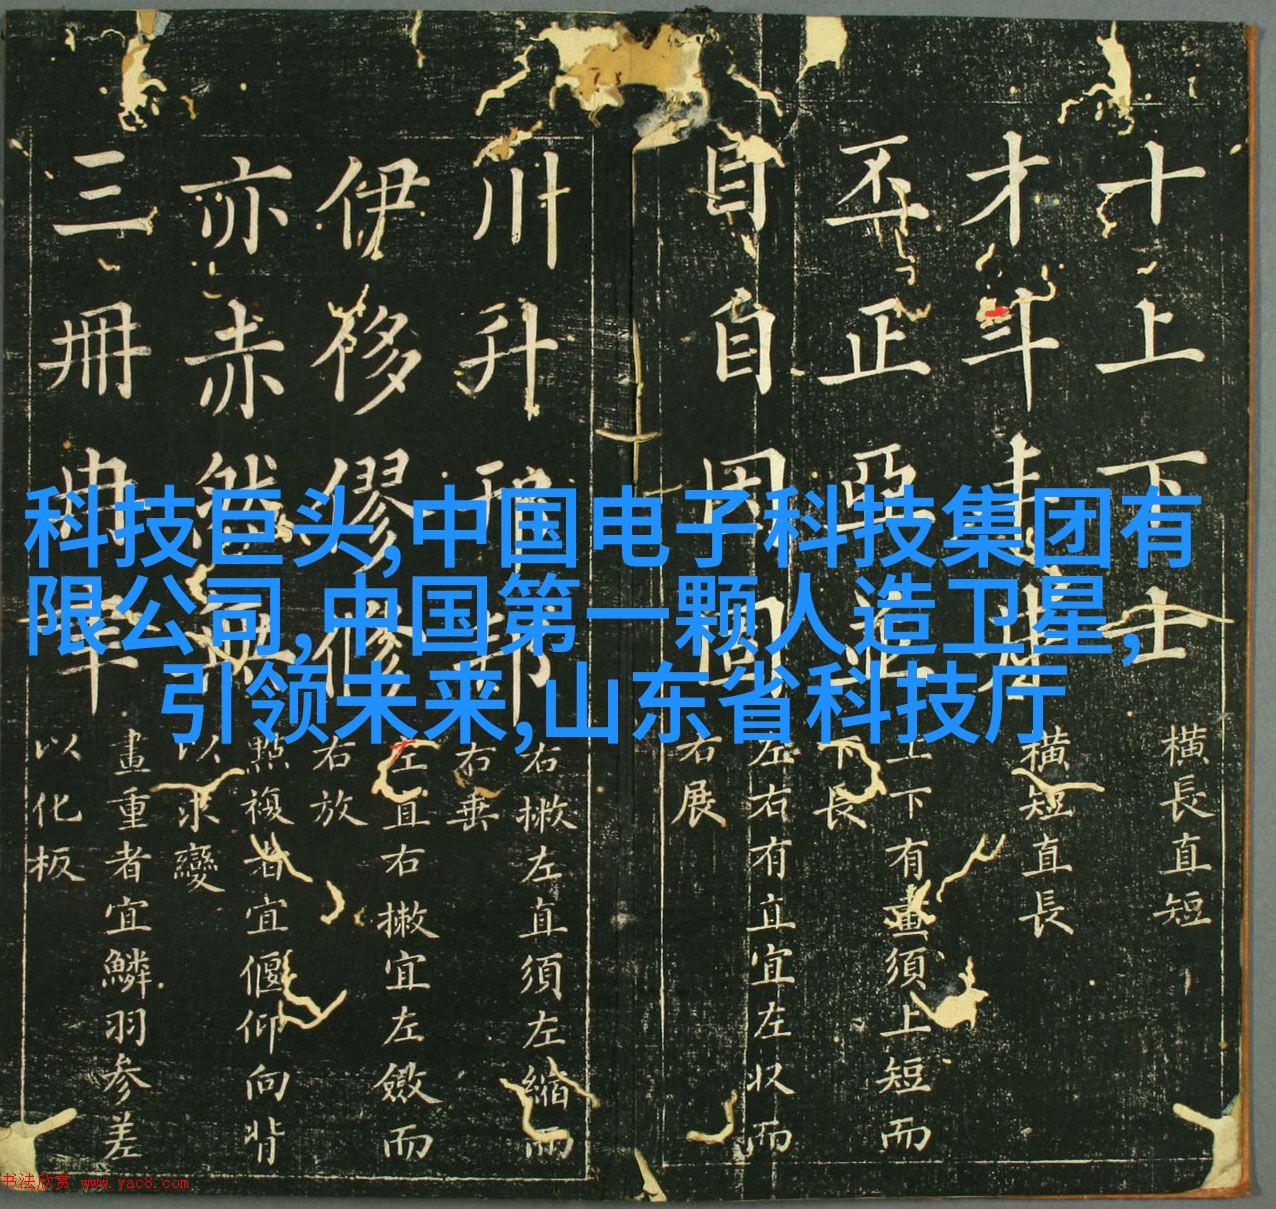 科技巨头,中国电子科技集团有
限公司,中国第一颗人造卫星,
引领未来,山东省科技厅
十上下士
橫長直短
才斗
橫短直長
丕正亞
上下有畫須上短而
下長
目自因固
左右有直宜左收而
右展
川升邦
右撇左直須左縮而
右垂
伊侈僇修
左直右撇宜左斂而
右放
亦赤然無
點複者宜偃仰向背
以求變
三冊冉
畫重者宜鱗羽参差
以化板
书法欣赏 www.yac8.com